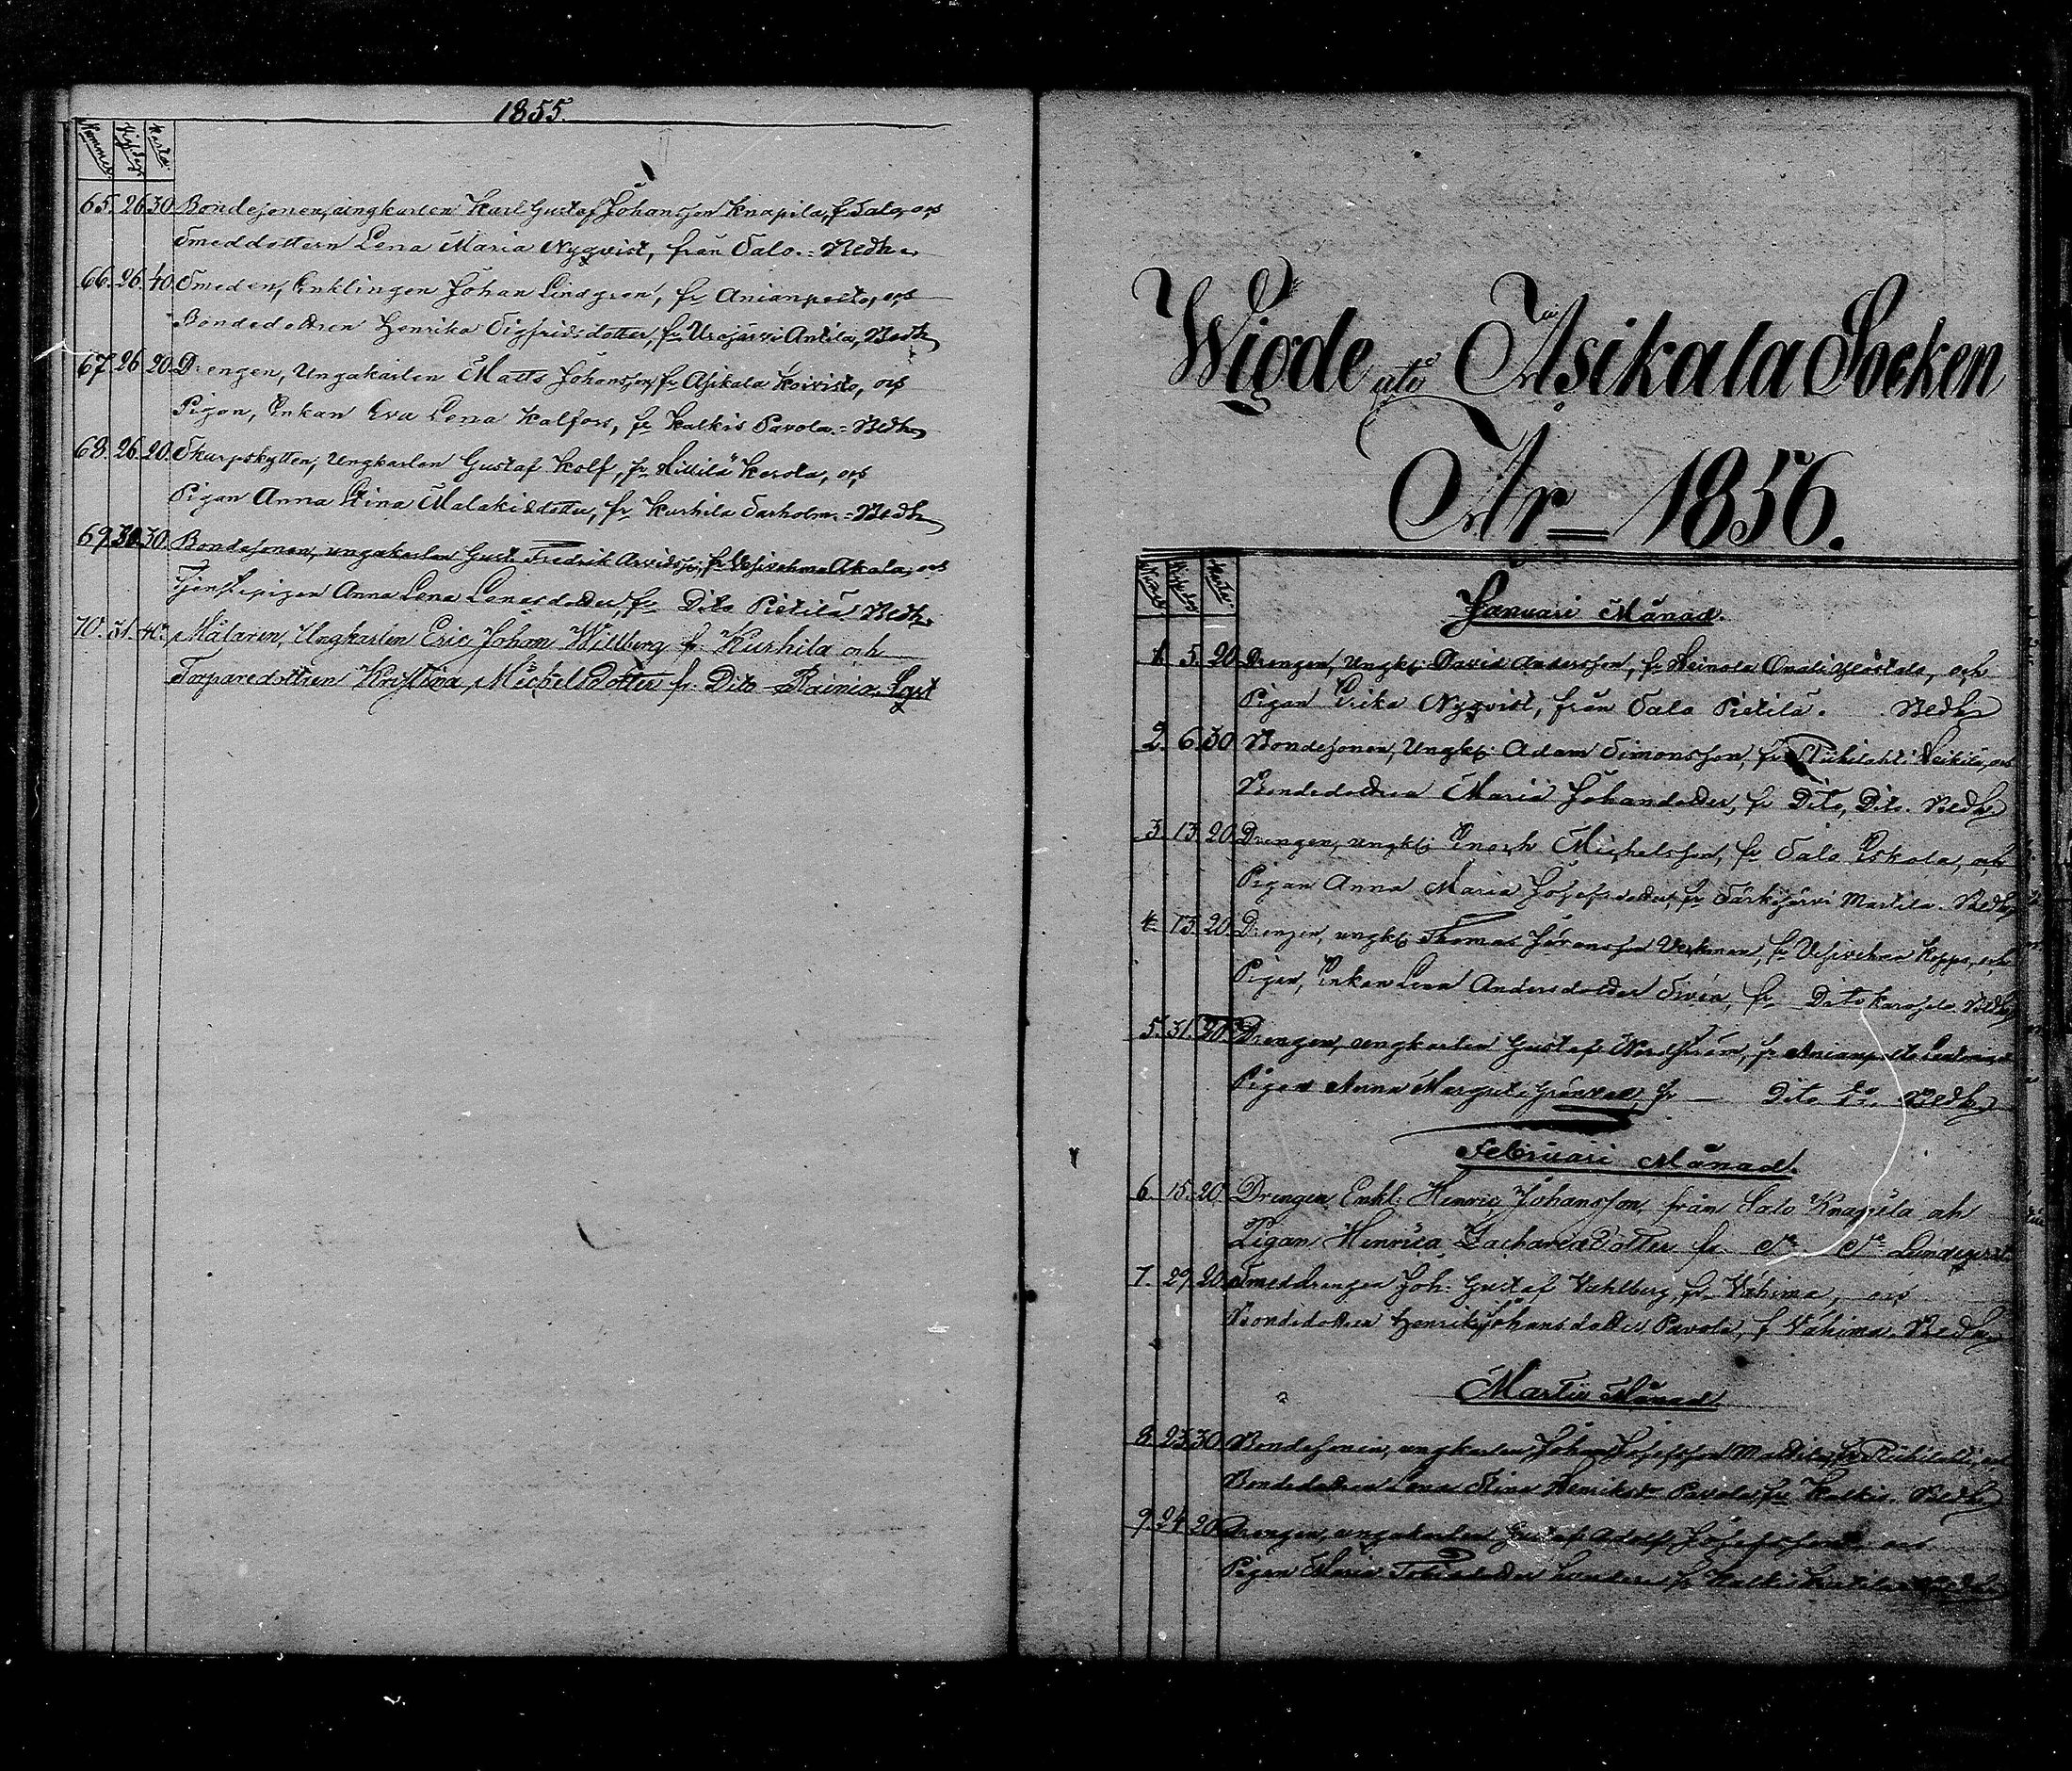 1855.
Nummer Vigd. dag Karta
65. 26 30 Bondesonen, ungkarlen Karl Gustaf Johansson Knapila, fr Salo, och
Smeddottern Lena Maria Nyqvist, från Salo.
66. 26. 40. Smeden, Enklingen Johan Lindgren, fr Anianpelto, och
Bondedottren Henrika Sigfridsdotter, fr Urajärvi Antila,
67. 26 20 Drengen, Ungakarlen Matts Johansson, fr Asikala Koivisto, och
Pigan, Enkan Eva Lena Kalfors, fr Kalkis Pavola.
68. 26. 20. Skarpskytten, Ungkarlen Gustaf Kolf, fr Hillilä Kerola, och
Pigan Anna Stina Malakidotter, fr Kurhila Sarholm.
69. 30. 30. Bondesonen, ungakarlen Gust. Fredrik Arvidss., fr Vesivehma Akala, och
Tjenstepigan Anna Lena Lenasdotter, fr Dito Pietilä
70. 31. 40. Målaren, Ungkarlen Eric Johan Willberg fr. Kurhila och
Torparedottren Kristina Michelsdotter fr. Dito Rainia.
Wigde uti Asikala Socken
År 1856.
Januari Månad.
1. 5. 20 Drengen, Ungk: David Andersson, fr Heinola Onali, och
Pigan Erika Nyqvist, från Salo Pietilä.
2. 6 30 Bondesonen, Ungk: Adam Simonsson, fr Riihilaht. Heikilä, och
Bondedottren Maria Johansdotter, fr Dito, Dito.
3. 13. 20 Drengen, ungk: Enoch Michelsson, fr Salo Eskola, och
Pigan Anna Maria Josefsdotter, fr Särkijärvi Martila.
4. 13. 20. Drengen, ungk: Thomas Göransson, fr Vesivehma, och
Pigan, Enkan Lena Andersdotter, fr Dito
5. 31. 20. Drengen, ungkarlen Gustaf Nordström, fr Anianpelto
Pigan Anna Margreta, fr Dito
Februari Månad.
6. 15. 20 Drengen Enkl: Henric Johansson, från Salo Knapila och
Pigan Henrica Zachariædotter fr. Do Do
7. 29. 20. Smeddrengen Joh: Gustaf Vahlberg, fr Vähimä, och
Bondedottren Henrika Johansdotter Pavola, f Vähimä.
Martii Månad.
8. 23 30 Bondesonen, ungkarlen Johan Josefsson Mattila, fr Riihilahti, och
Bondedottren Lena Stina Henriksdr Pavola, fr Kalkis.
9. 24. 20. Drengen, ungakarlen Gustaf Adolf Josefsson och
Pigan Maria Tobiasdotter fr Kalkis